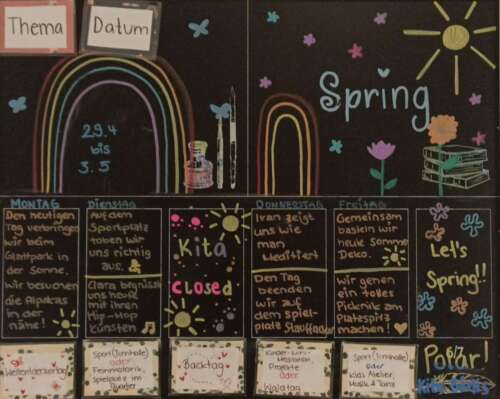 Thema
Datum
29.4
bis
3.5
Spring
MONTAG
Den heutigen
Tag verbringen
wir beim
Glattpark in
der Sonne.
Wir besuchen
die Alpakas
in der
nähe!
DIENSTAG
Auf dem
Sportplatz
toben wir
uns richtig
aus.
Clara
uns heute
mit ihren
Hip-Hop
Künsten
Kita
closed
DONNERSTAG
Iran zeigt
uns wie
man
Meditiert
Den Tag
beenden
wir auf
dem spiel-
platz
FREITAG
Gemeinsam
basteln wir
neue Sommer
Deko.
Wir genen
ein toles
Picknik am
Platzspitz
machen!
Let's
Spring!!
Weltentdeckertag
Sport (Turnhalle)
oder
Feinmotorik,
Spielplatz im
Quartier
Backtag
Kinder-Yoga
Meditation,
Projekte
oder
Waldtag
Sport (Turnhalle)
oder
Kids Atelier,
Musik & Tanz
Polar!